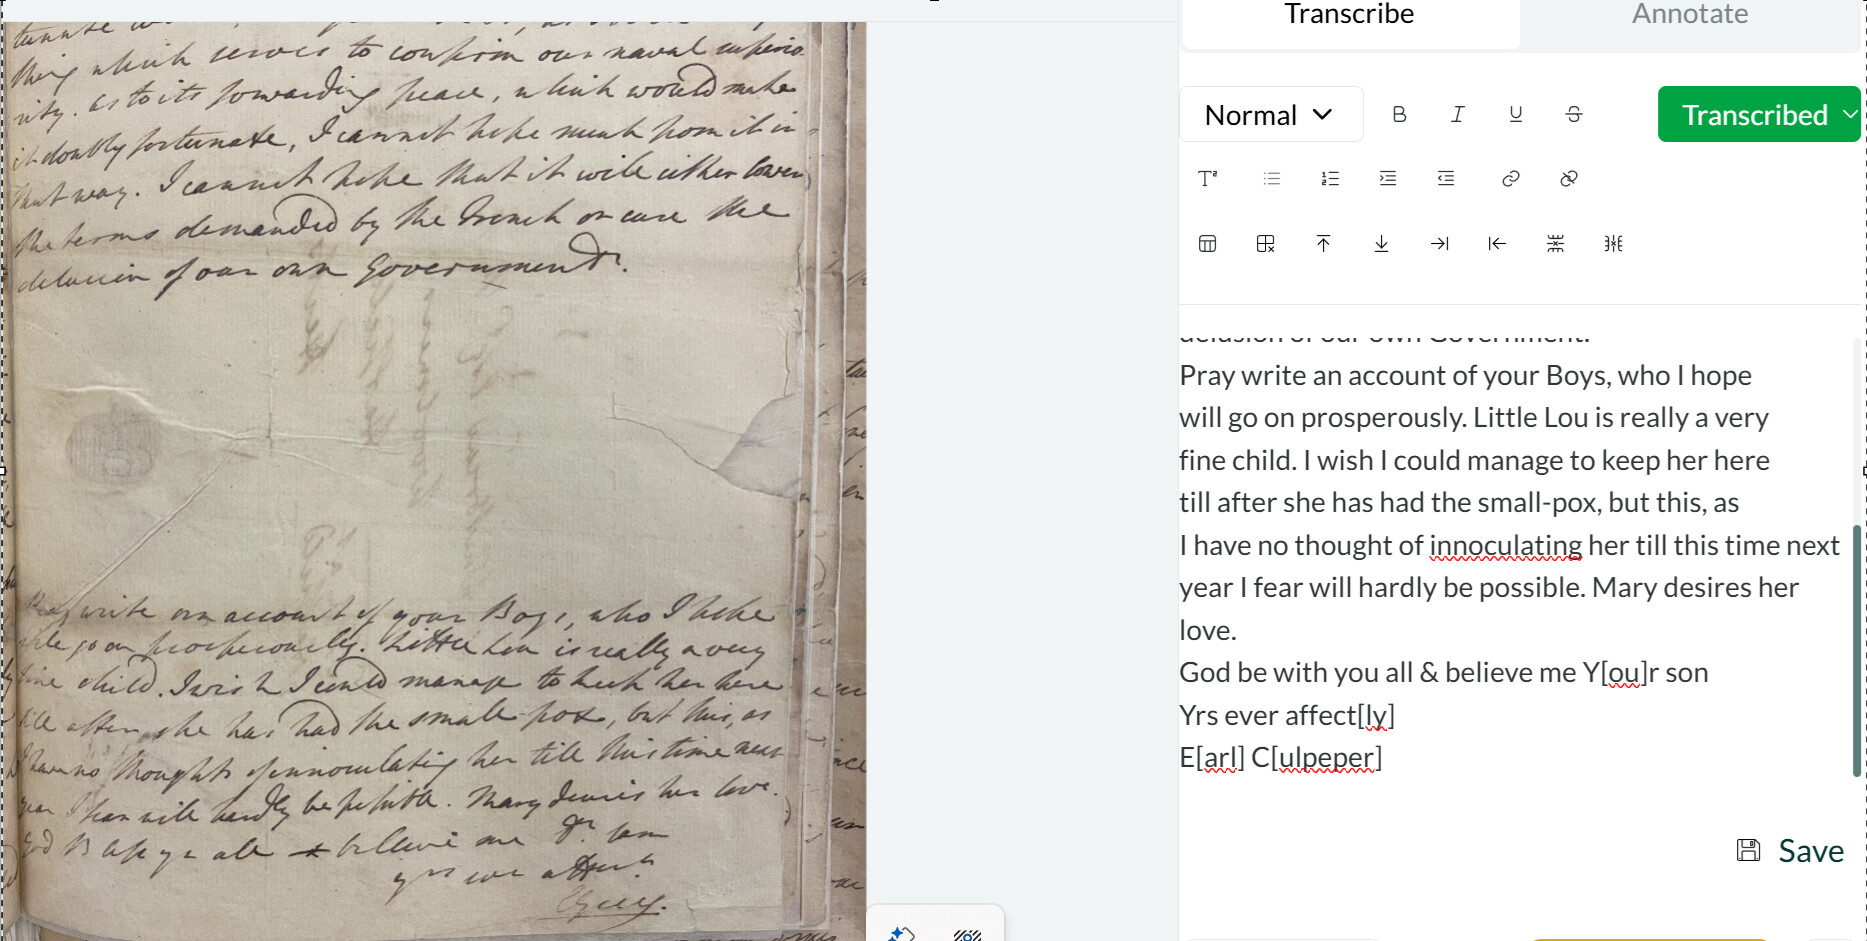 thing which serves to confirm our naval superio-
rity. as to its forwarding peace, which would make
it doubly fortunate, I cannot hope much from it in
that way. I cannot hope that it will either lower
the terms demanded by the French or cure the
delusion of our own Government.
Pray write an account of your Boys, who I hope
will go on prosperously. Little Lou is really a very
fine child. I wish I could manage to keep her here
till after she has had the small-pox, but this, as
I have no thoughts of innoculating her till this time next
year I fear will hardly be possible. Mary desires her love.
God Bless yu all & believe me Dr. Sam
yrs ever affectly.
CGrey.
Transcribe
Annotate
Normal
B I U S
Transcribed
delusion of our own Government.
Pray write an account of your Boys, who I hope
will go on prosperously. Little Lou is really a very
fine child. I wish I could manage to keep her here
till after she has had the small-pox, but this, as
I have no thought of innoculating her till this time next
year I fear will hardly be possible. Mary desires her
love.
God be with you all & believe me Y[ou]r son
Yrs ever affect[ly]
E[arl] C[ulpeper]
Save